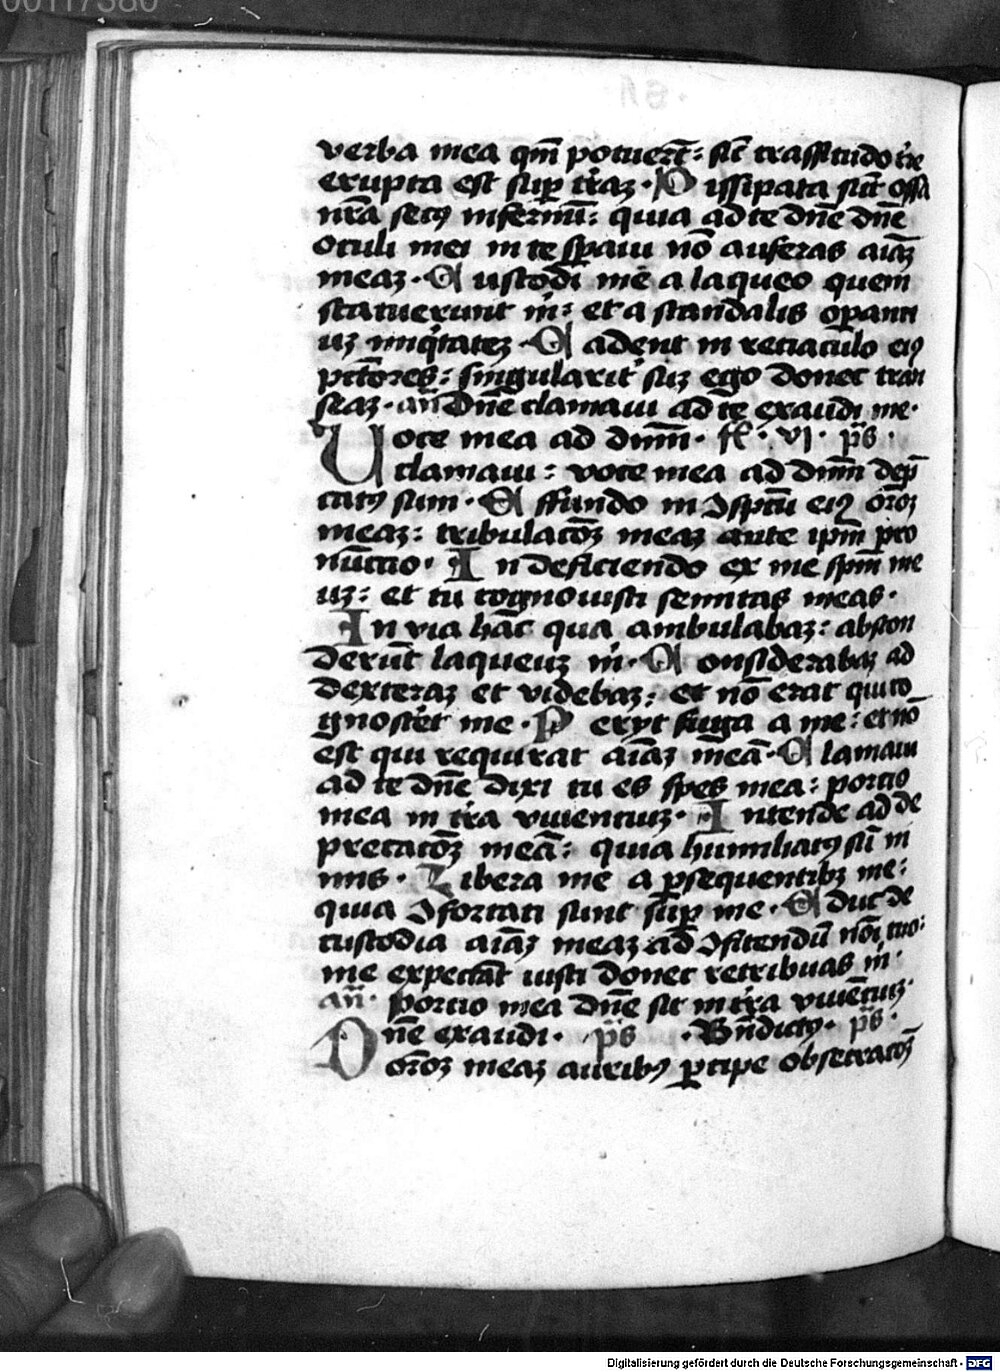 00117380
verba mea qm̄ potuert̄: sic̄ crassitudo tr̄e
erupta est sup̄ trāꝫ. Dissipata sūt ossa
nr̄a secꝰ infernū: quia ad te dn̄e dn̄e
oculi mei in te sp̄aui nō auferas aīaꝫ
meaꝫ. Custodi me a laqueo quem
statuerunt m̄: et a scandalis oꝑanti
uꝫ iniq̄tateꝫ. Cadent in retiaculo eiꝰ
pctōres: singularit̄ suꝫ ego donec tran
seaꝫ. an̄ Dn̄e clamaui ad te exaudi me.
Uoce mea ad dnm̄. fr̄. vi. p̄s.
clamaui: voce mea ad dnm̄ dep̄
catꝰ sum. Effundo in ↄspc̄tū eiꝰ or̄oꝫ
meaꝫ: tribulacōꝫ meaꝫ ante ipm̄ pro
nūctio. In deficiendo ex me spm̄ me
uꝫ: et tu cognouisti semitas meas.
In via hāc qua ambulabaꝫ: abscon
derūt laqueuꝫ m̄. Considerabaꝫ ad
dexteraꝫ et videbaꝫ: et nō erat qui co
gnoscēt me. Peryt fuga a me: et nō
est qui requirat aīaꝫ meā. Clamaui
ad te dn̄e dixi tu es spes mea: portio
mea in tr̄a viuentiuꝫ. Intende ad de
precatōꝫ meā: quia humiliatꝰ sū ni
mis. Libera me a ꝑsequentibꝫ me:
quia ↄfortati sunt sup̄ me. Educ de
custodia aīaꝫ meaꝫ ad ↄfitendū nōi tuo:
me expectāt iusti donec retribuas m̄.
an̄. portio mea dn̄e sit in tr̄a viuētiuꝫ.
Dn̄e exaudi. p̄s. Bn̄dictꝰ. p̄s.
or̄oꝫ meaꝫ auribꝰ ꝑcipe obsecratōꝫ
Digitalisierung gefördert durch die Deutsche Forschungsgemeinschaft - DFG